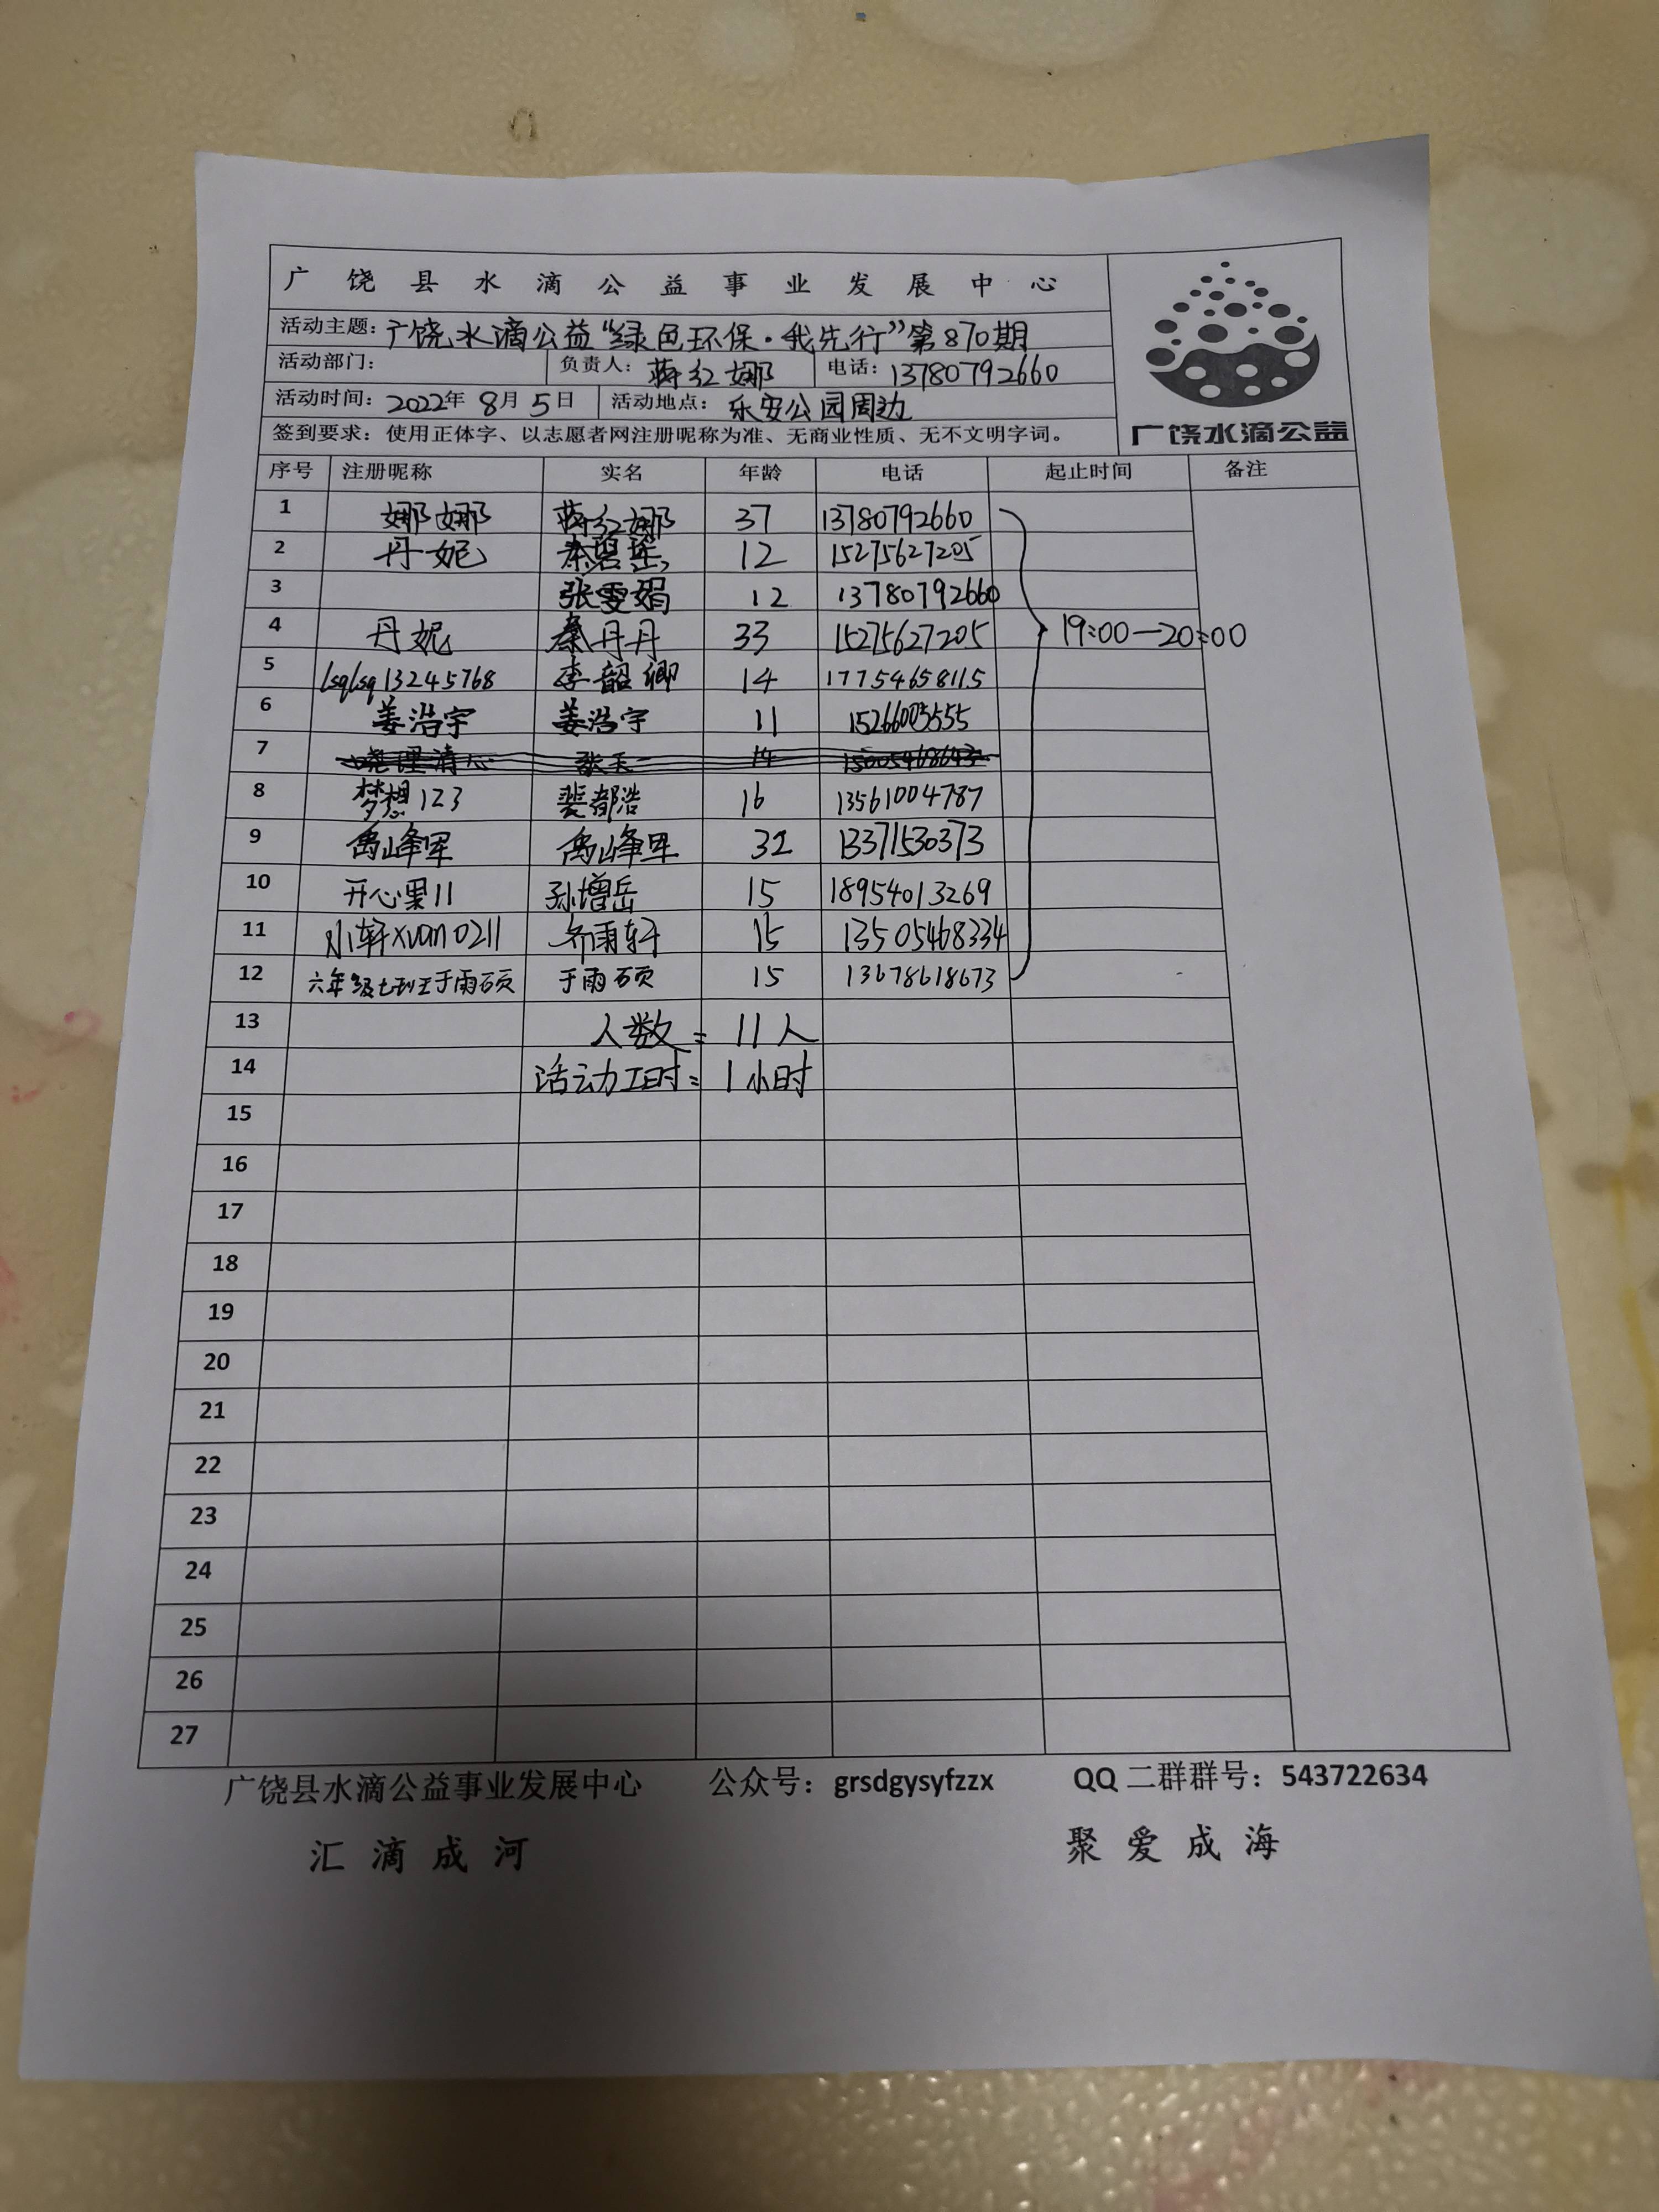 广饶县水滴公益事业发展中心
活动主题：广饶水滴公益“绿色环保·我先行”第870期
活动部门： 负责人：蒋红娜 电话：13780792660
活动时间：2022年8月5日 活动地点：乐安公园周边
签到要求：使用正体字、以志愿者网注册昵称为准、无商业性质、无不文明字词。
广饶水滴公益
序号 注册昵称 实名 年龄 电话 起止时间 备注
1 娜娜 蒋红娜 37 13780792660
2 丹妮 12 15275627205
3 张雯娟 12 13780792660
4 丹妮 秦丹丹 33 15275627205 19:00—20:00
5 lsqlsq13245768 李韶卿 14 17754658115
6 姜浩宇 姜浩宇 11
7
8 梦想123 裴都浩 16 13561004787
9 禹峰军 禹峰军 32 13371530373
10 开心果11 孙增岳 15 18954013269
11 小轩xuan0211 齐雨轩 15 13505468334
12 六年级七班王于雨硕 于雨硕 15 13678618673
13 人数=11人
14 活动工时=1小时
15
16
17
18
19
20
21
22
23
24
25
26
27
广饶县水滴公益事业发展中心 公众号：grsdgysyfzzx QQ二群群号：543722634
汇滴成河 聚爱成海